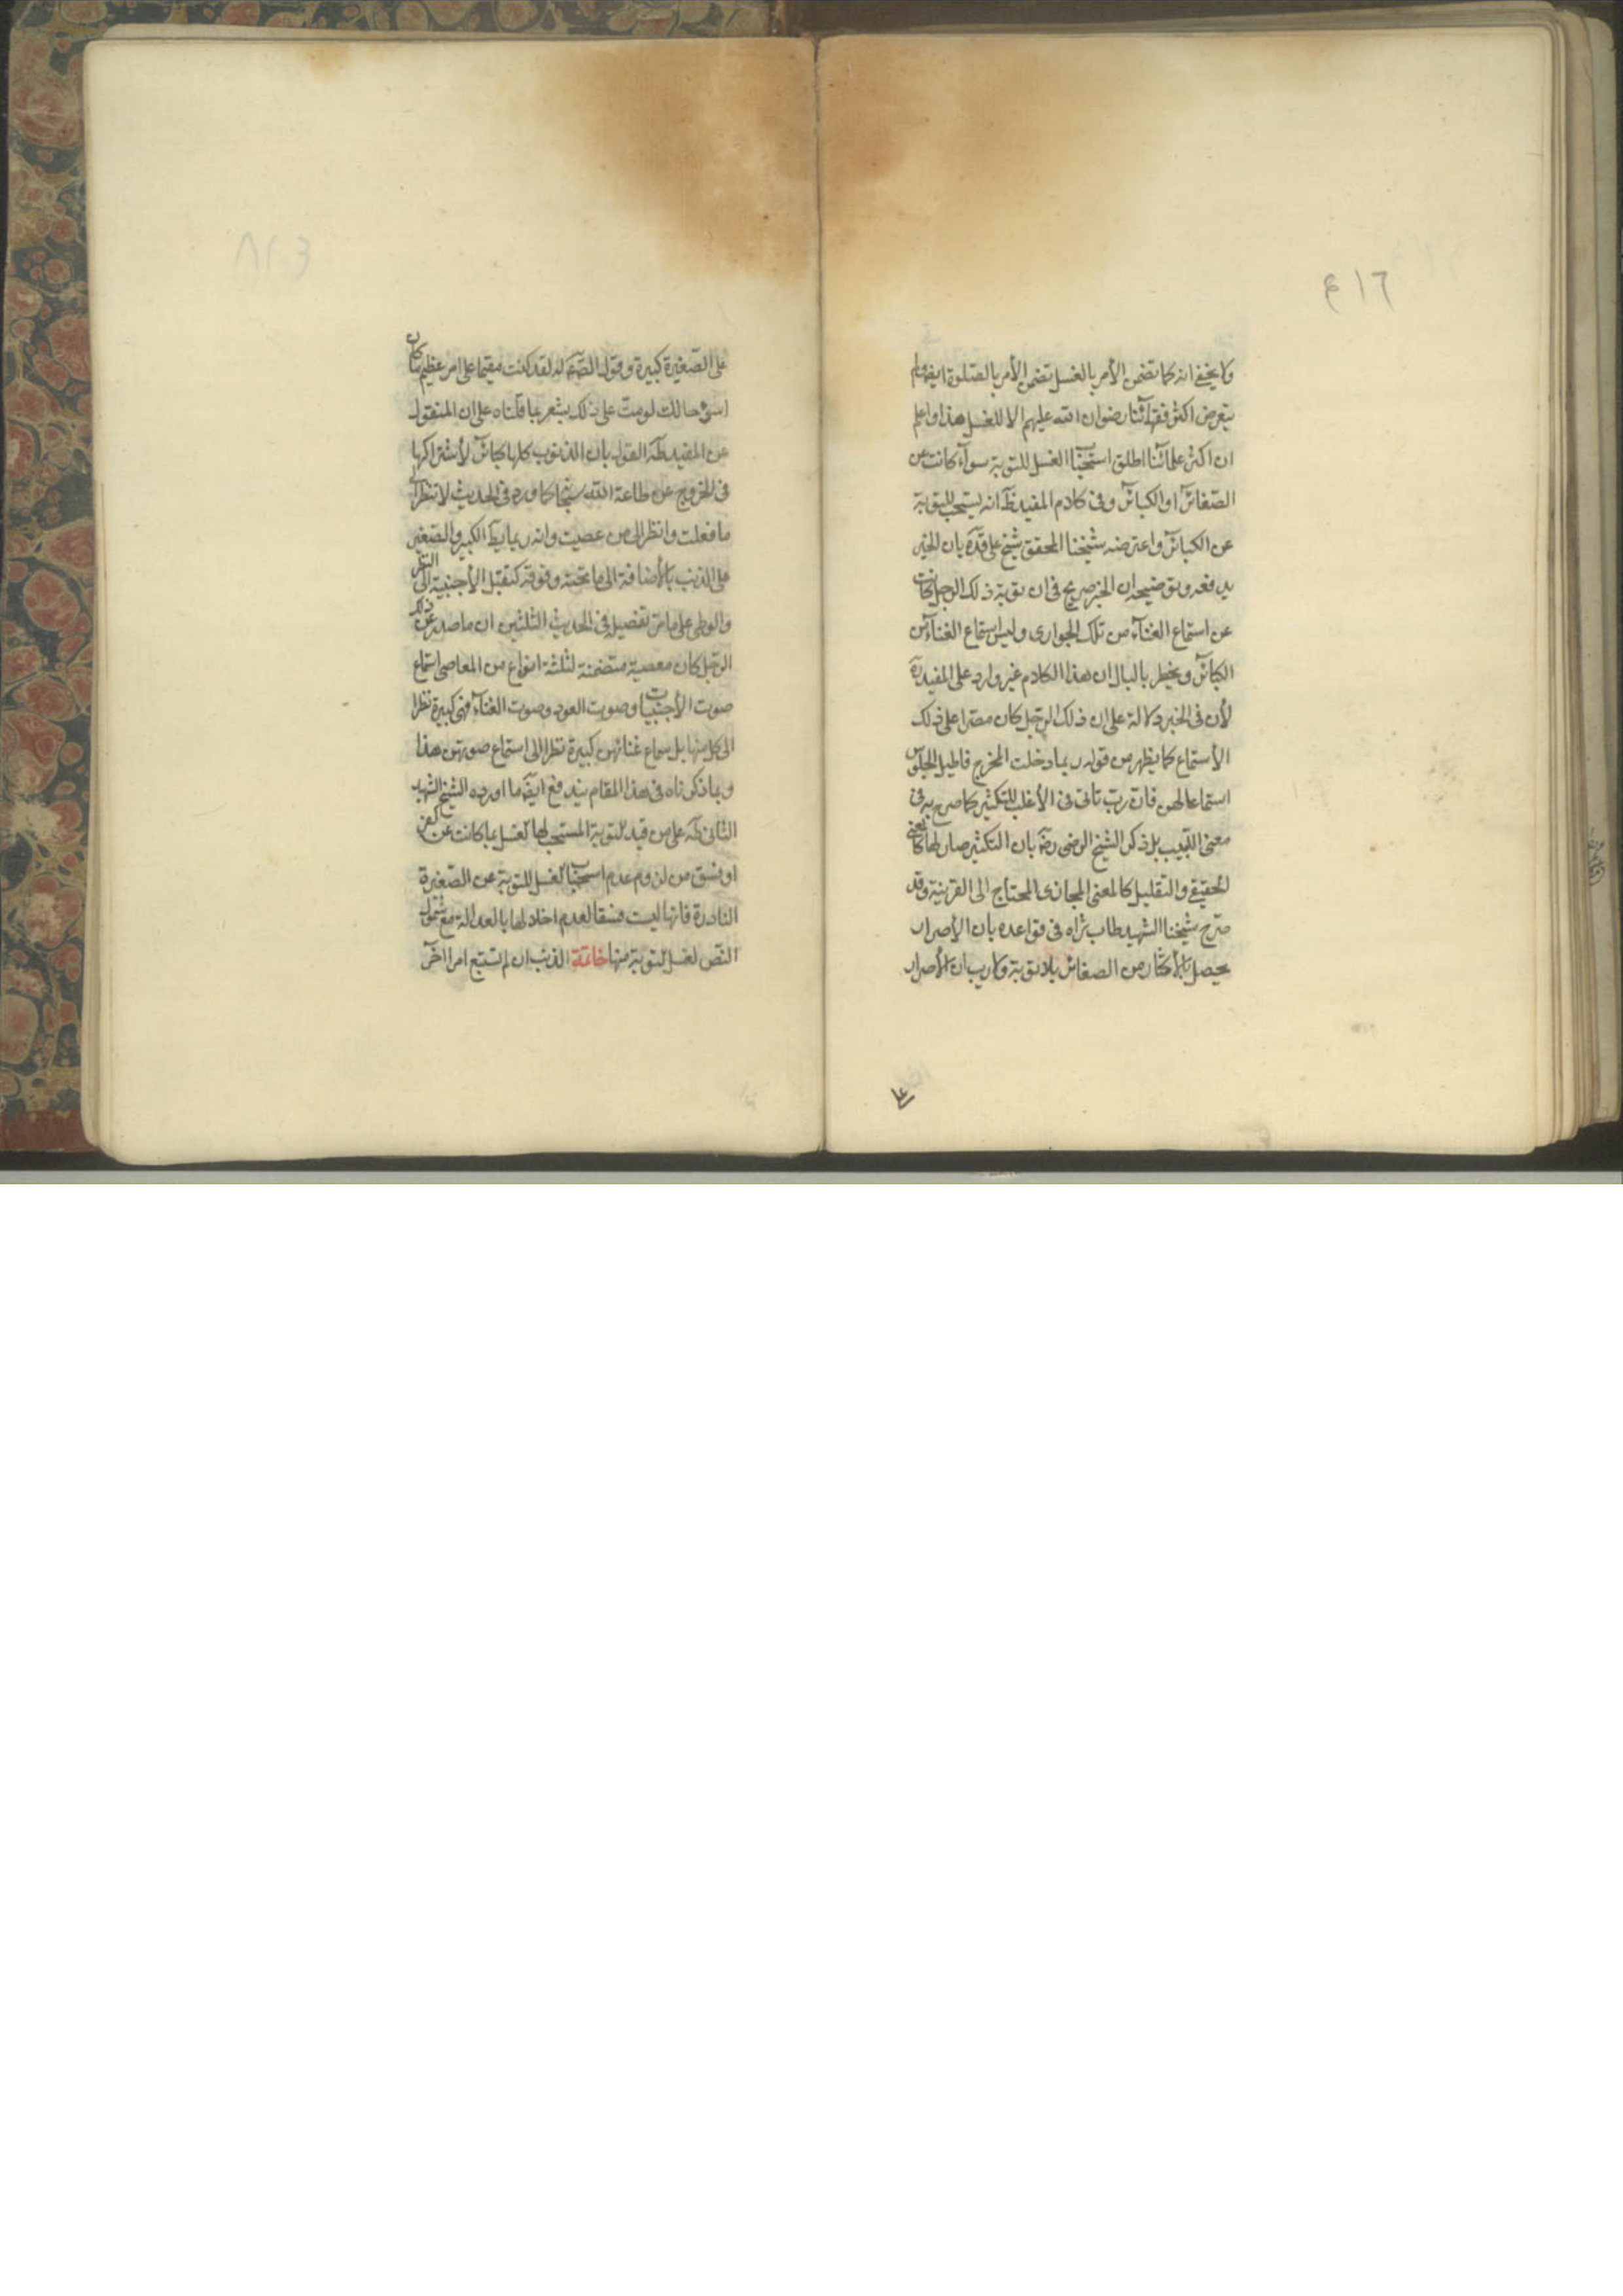 ٤١٦
ولا يخفى انه كما تضمن الأمر بالغسل تضمن الأمر بالصلوة ايضا ولم
يتعرض اكثر فقهآئنا رضوان الله عليهم الا للغسل هذا واعلم
ان اكثر علمآئنا اطلق استحباب الغسل للتوبة سوآء كانت عن
الصغائر او الكبائر وفى كلام المفيد طآ انه يستحب للتوبة
عن الكبائر واعترضه شيخنا المحقق شيخ على قده بان الخبر
يدفعه وتوضيحه ان الخبر صريح فى ان توبة ذلك الرجل كانت
عن استماع الغنآء من تلك الجوارى وليس استماع الغنآء من
الكبائر ويخطر بالبال ان هذا الكلام غير وارد على المفيد ره
لأن فى الخبر دلالة على ان ذلك الرجل كان مصرا على ذلك
الأستماع كما يظهر من قوله ربما دخلت المخرج فاطيل الجلوس
استماعا لهن فان رب تاتى فى الأغلب للتكثير كما صرح به فى
مغنى اللبيب بل ذكر الشيخ الرضى رضه بان التكثير صار لها كالمعنى
الحقيقى والتقليل كالمعنى المجازى المحتاج الى القرينة وقد
صرح شيخنا الشهيد طاب ثراه فى قواعده بان الأصرار
يحصل بالأكثار من الصغائر بلا توبة ولا ريب ان الأصرار
على الصغيرة كبيرة وقوله الصم له لقد كنت مقيما على امر عظيم ما كان
اسوء حالك لو مت على ذلك يشعر بما قلناه على ان المنقول
عن المفيد طآ القول بان الذنوب كلها كبائر لأشتراكها
فى الخروج عن طاعة الله سبحانه كما ورد فى الحديث لا تنظر الى
ما فعلت وانظر الى من عصيت وانه ربما يطلق الكبير والصغير
على الذنب بالأضافة الى ما تحته وفوقه كتقبيل الأجنبية الى النظر
والوطى على ما مر تفصيله فى الحديث الثلثين ان ما صدر عن ذلك
الرجل كان معصية متضمنة لثلثة انواع من المعاصى استماع
صوت الأجنبيات وصوت العود وصوت الغنآء فهى كبيرة نظرا
الى كل منها بل سماع غنائهن كبيرة نظرا الى استماع صوتهن هذا
وبما ذكرناه فى هذا المقام يندفع ايضا ما اورده الشيخ الشهيد
الثانى طآ على من قيد التوبة المستحب لها الغسل بما كانت عن كفر
او فسق من لزوم عدم استحباب الغسل للتوبة عن الصغيرة
النادرة فانها ليست فسقا لعدم اخلالها بالعدالة مع شمول
النص لغسل التوبة منها خاتمة الذنب ان لم يستتبع امرا آخر